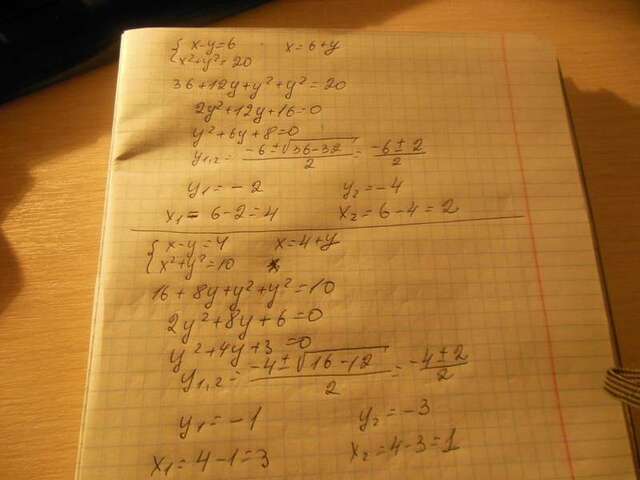 { x-y=6 x=6+y
x²+y²=20
36+12y+y²+y²=20
2y²+12y+16=0
y²+6y+8=0
y₁,₂= (-6±√(36-32))/2 = (-6±2)/2
y₁=-2 y₂=-4
x₁=6-2=4 x₂=6-4=2
{ x-y=4 x=4+y
x²+y²=10
16+8y+y²+y²=10
2y²+8y+6=0
y²+4y+3=0
y₁,₂= (-4±√(16-12))/2 = (-4±2)/2
y₁=-1 y₂=-3
x₁=4-1=3 x₂=4-3=1